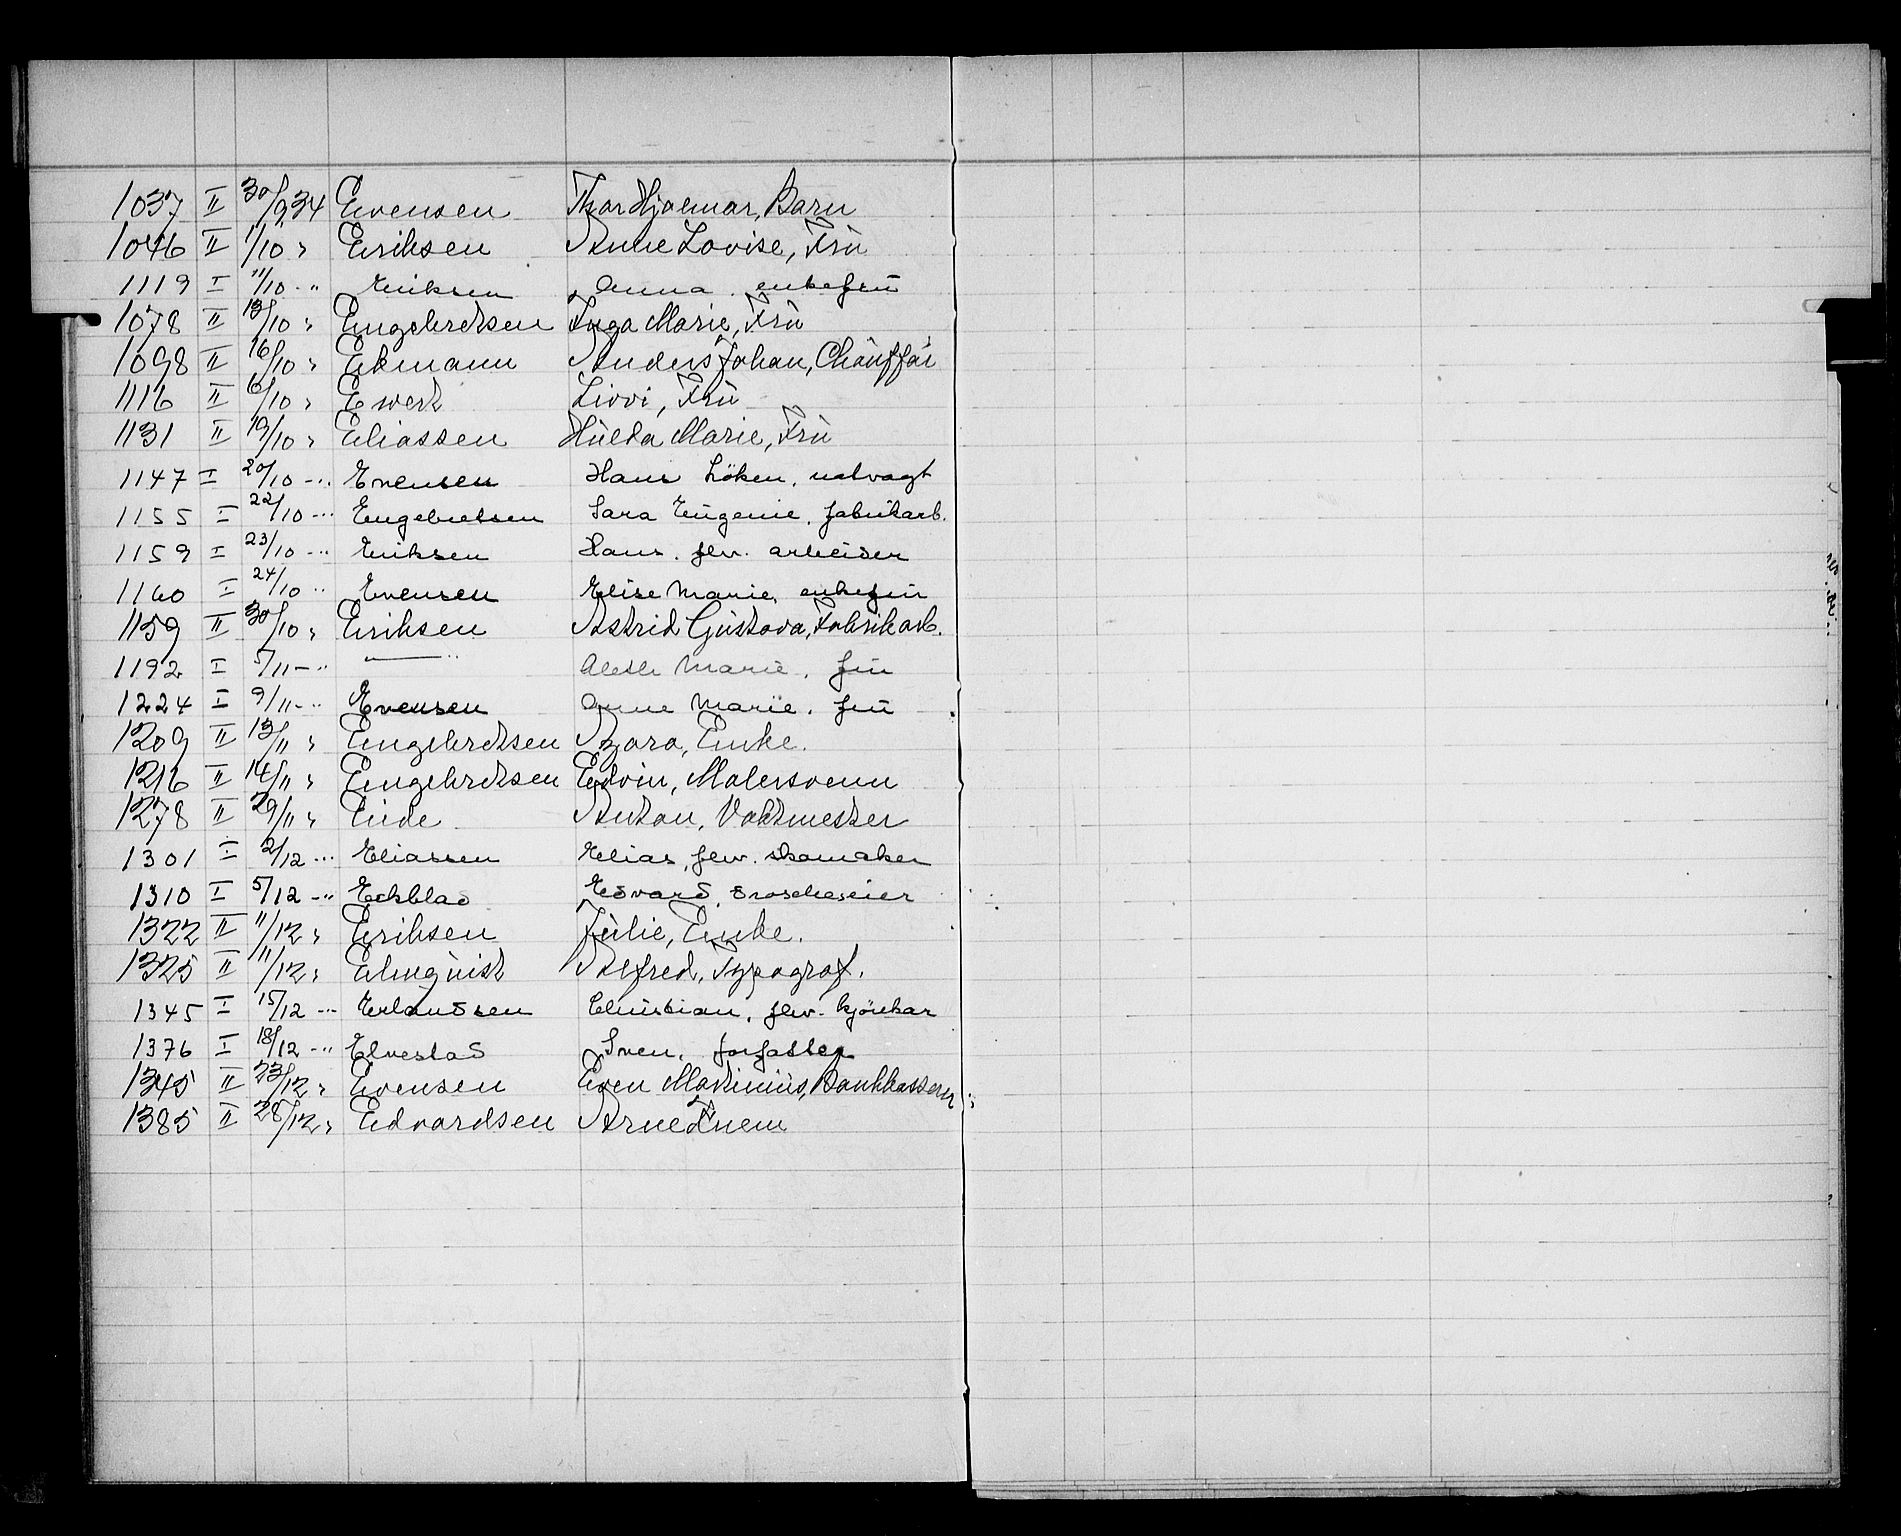 1037 II 30/9 34 Evensen Thor Hjalmar, Barn
1046 II 1/10 " Eriksen Anne Lovise, Frù
1119 I 11/10 - " Eriksen Anna. enkefrù
1078 II 13/10 " Engebretsen Inga Marie, Frù
1098 II 16/10 " Ekmann Anders Johan, Chauffør
1116 II 6/10 " Ewert Livvi, Frù
1131 II 19/10 " Eliassen Hùlda Marie, Frù
1147 I 20/10 - " Evensen Hans Löken, natvagt
1155 I 22/10 - " Engebretsen Sara Eùgenie, fabrikarb.
1159 I 23/10 - " Eriksen Hans. flv. arbeider
1160 I 24/10 " Evensen Elise Marie, enkefrù
1159 II 30/10 " Eriksen Astrid Gùstava, Fabrikarb.
1192 I 5/11 - " —— " Marie, frù
1224 I 9/11 - " Evensen Anne Marie, frù
1209 II 13/11 " Engebretsen Thora, Enke.
1216 II 14/11 " Engebretsen Edvin, Malersvenn
1278 II 29/11 " Eide Anton, Vaktmester
1301 I 2/12 - " Eliassen Elias, flv. skomaker
1310 I 5/12 - " Eckblad Edvard, droscheeier
1322 II 11/12 " Eriksen Jùlie, Enke.
1325 II 11/12 " Elmqùist Alfred, Typograf.
1345 I 15/12 - " Erlandsen Christian, flv. kjörekar
1376 I 18/12 - " Elvestad Sven, forfatter
1345 II 23/12 " Evensen Even Martiniùs, Bankkasserer
1385 II 28/12 " Edvardsen Arne